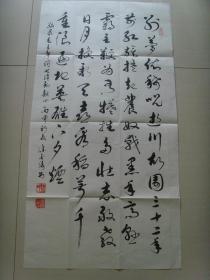 别夢依稀咒逝川故園三十二年
前紅旗捲起農奴戟黑手高懸
霸主鞭為有犧牲多壮志敢教
日月換新天喜看稻菽千
重浪遍地英雄下夕煙